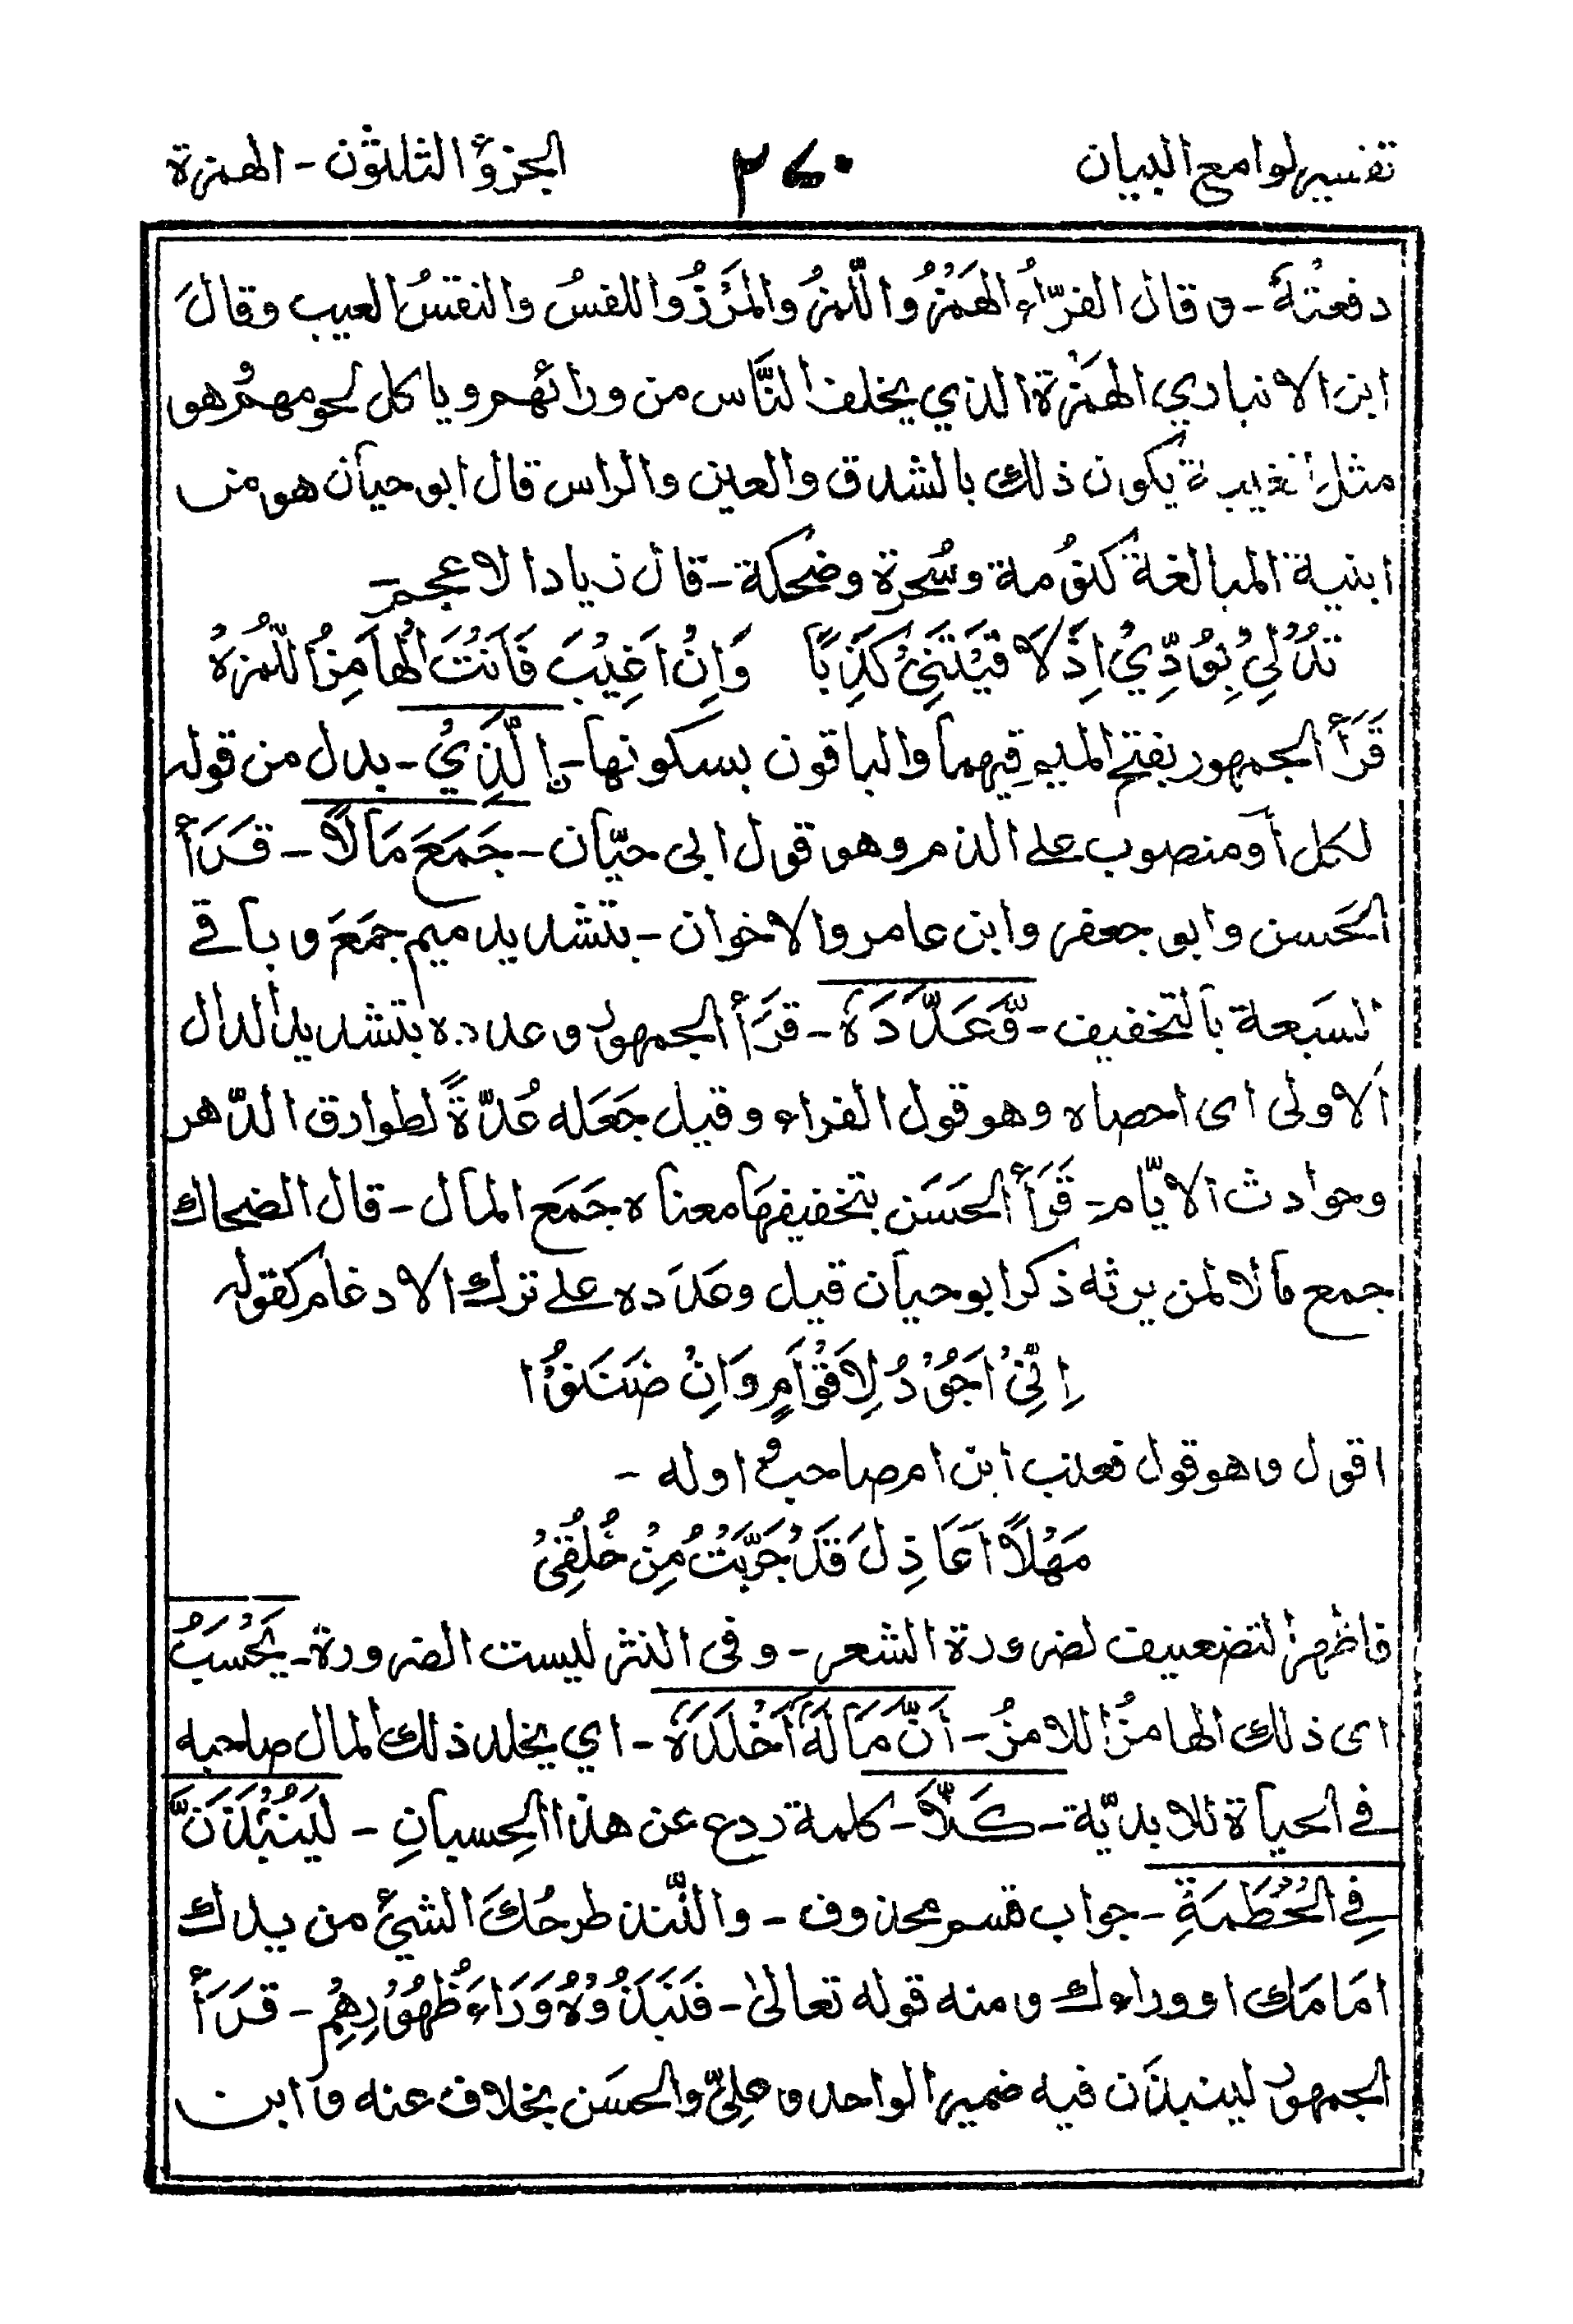 تفسير لوامع البيان
٢٤٠
الجزؤ الثلثون - الهمزة
دفعتهٗ - و قال الفرّاءُ الهَمْزُ واللّمزُ والمَرْزُ واللقسُ والنقسُ العيب وقالَ
ابن الانباري الهَمْزة الذي يخلف النَّاس من ورائهم و ياكل لحومهم وهو
مثل الغيبة يكون ذلك بالشدق والعين والراس قال ابو حيان هو من
ابنية المبالغة كنوُمة وسُحرة وضحكة - قال زياد الاعجم -
تُدْلِيْ بِوُدِّيْ اِذْ لَاقَيْتَنِيْ كَذِبًا وَاِنْ اُغَيَّبْ فَاَنْتَ الْهَامِزُ اللُّمَزَهْ
قَرَأَ الجمهور بفتح الميم فيهما والباقون بسكونها - اِلَّذِيْ - بدل من قوله
لكل أو منصوب على الذم وهو قول ابى حيّان - جَمَعَ مَالًا - قَرَأَ
الحَسن وابو جعفر وابن عامر والاخوان - بتشديد ميم جمَعَ و باقي
السَبعة بالتخفيف - وَّعَدَّدَهٗ - قَرَأَ الجمهور وعدده بتشديد الدال
الاولى اى احصاه وهو قول الفراء وقيل جَعَله عُدّةً لطوارق الدّهر
وحوادث الايّام - قَرَأَ الحَسَن بتخفيفهَا معناه جَمَع المال - قال الضحاك
جمع مالا لمن يرثه ذكر ابو حيان قيل وعَدَده على ترك الادغام كقوله
اِنِّيْ اَجُوْدُ لِاَقْوَامٍ وَاِنْ ضَنَنُوْا
اقول وهو قول قعنب ابن ام صاحب و اوله -
مَهْلًا اَعَاذِلَ قَدْ جَرَّبْتُ مِنْ خُلُقِيْ
فاظهر التضعيف لضرورة الشعر - وفى النثر ليست الضرورة - يَحْسَبُ
اى ذلك الهامزُ اللامزُ - أَنَّ مَالَهٗ أَخْلَدَهٗ - اي يخلد ذلك المال صاحبه
في الحياة للابديّة - كَلَّا - كلمة ردع عن هذا الحِسبانِ - لَيُنْبَذَنَّ
فِي الْحُطَمَةِ - جواب قسم محذوف - والنَّبْذ طرحُكَ الشيئ من يدك
امَامَك او وراءك ومنه قوله تعالىٰ - فَنَبَذُوْهُ وَرَاءَ ظُهُوْرِهِمْ - قَرَأَ
الجمهور لينبذَن فيه ضمير الواحد وعلِيّ والحسَن بخلاف عنه وابن